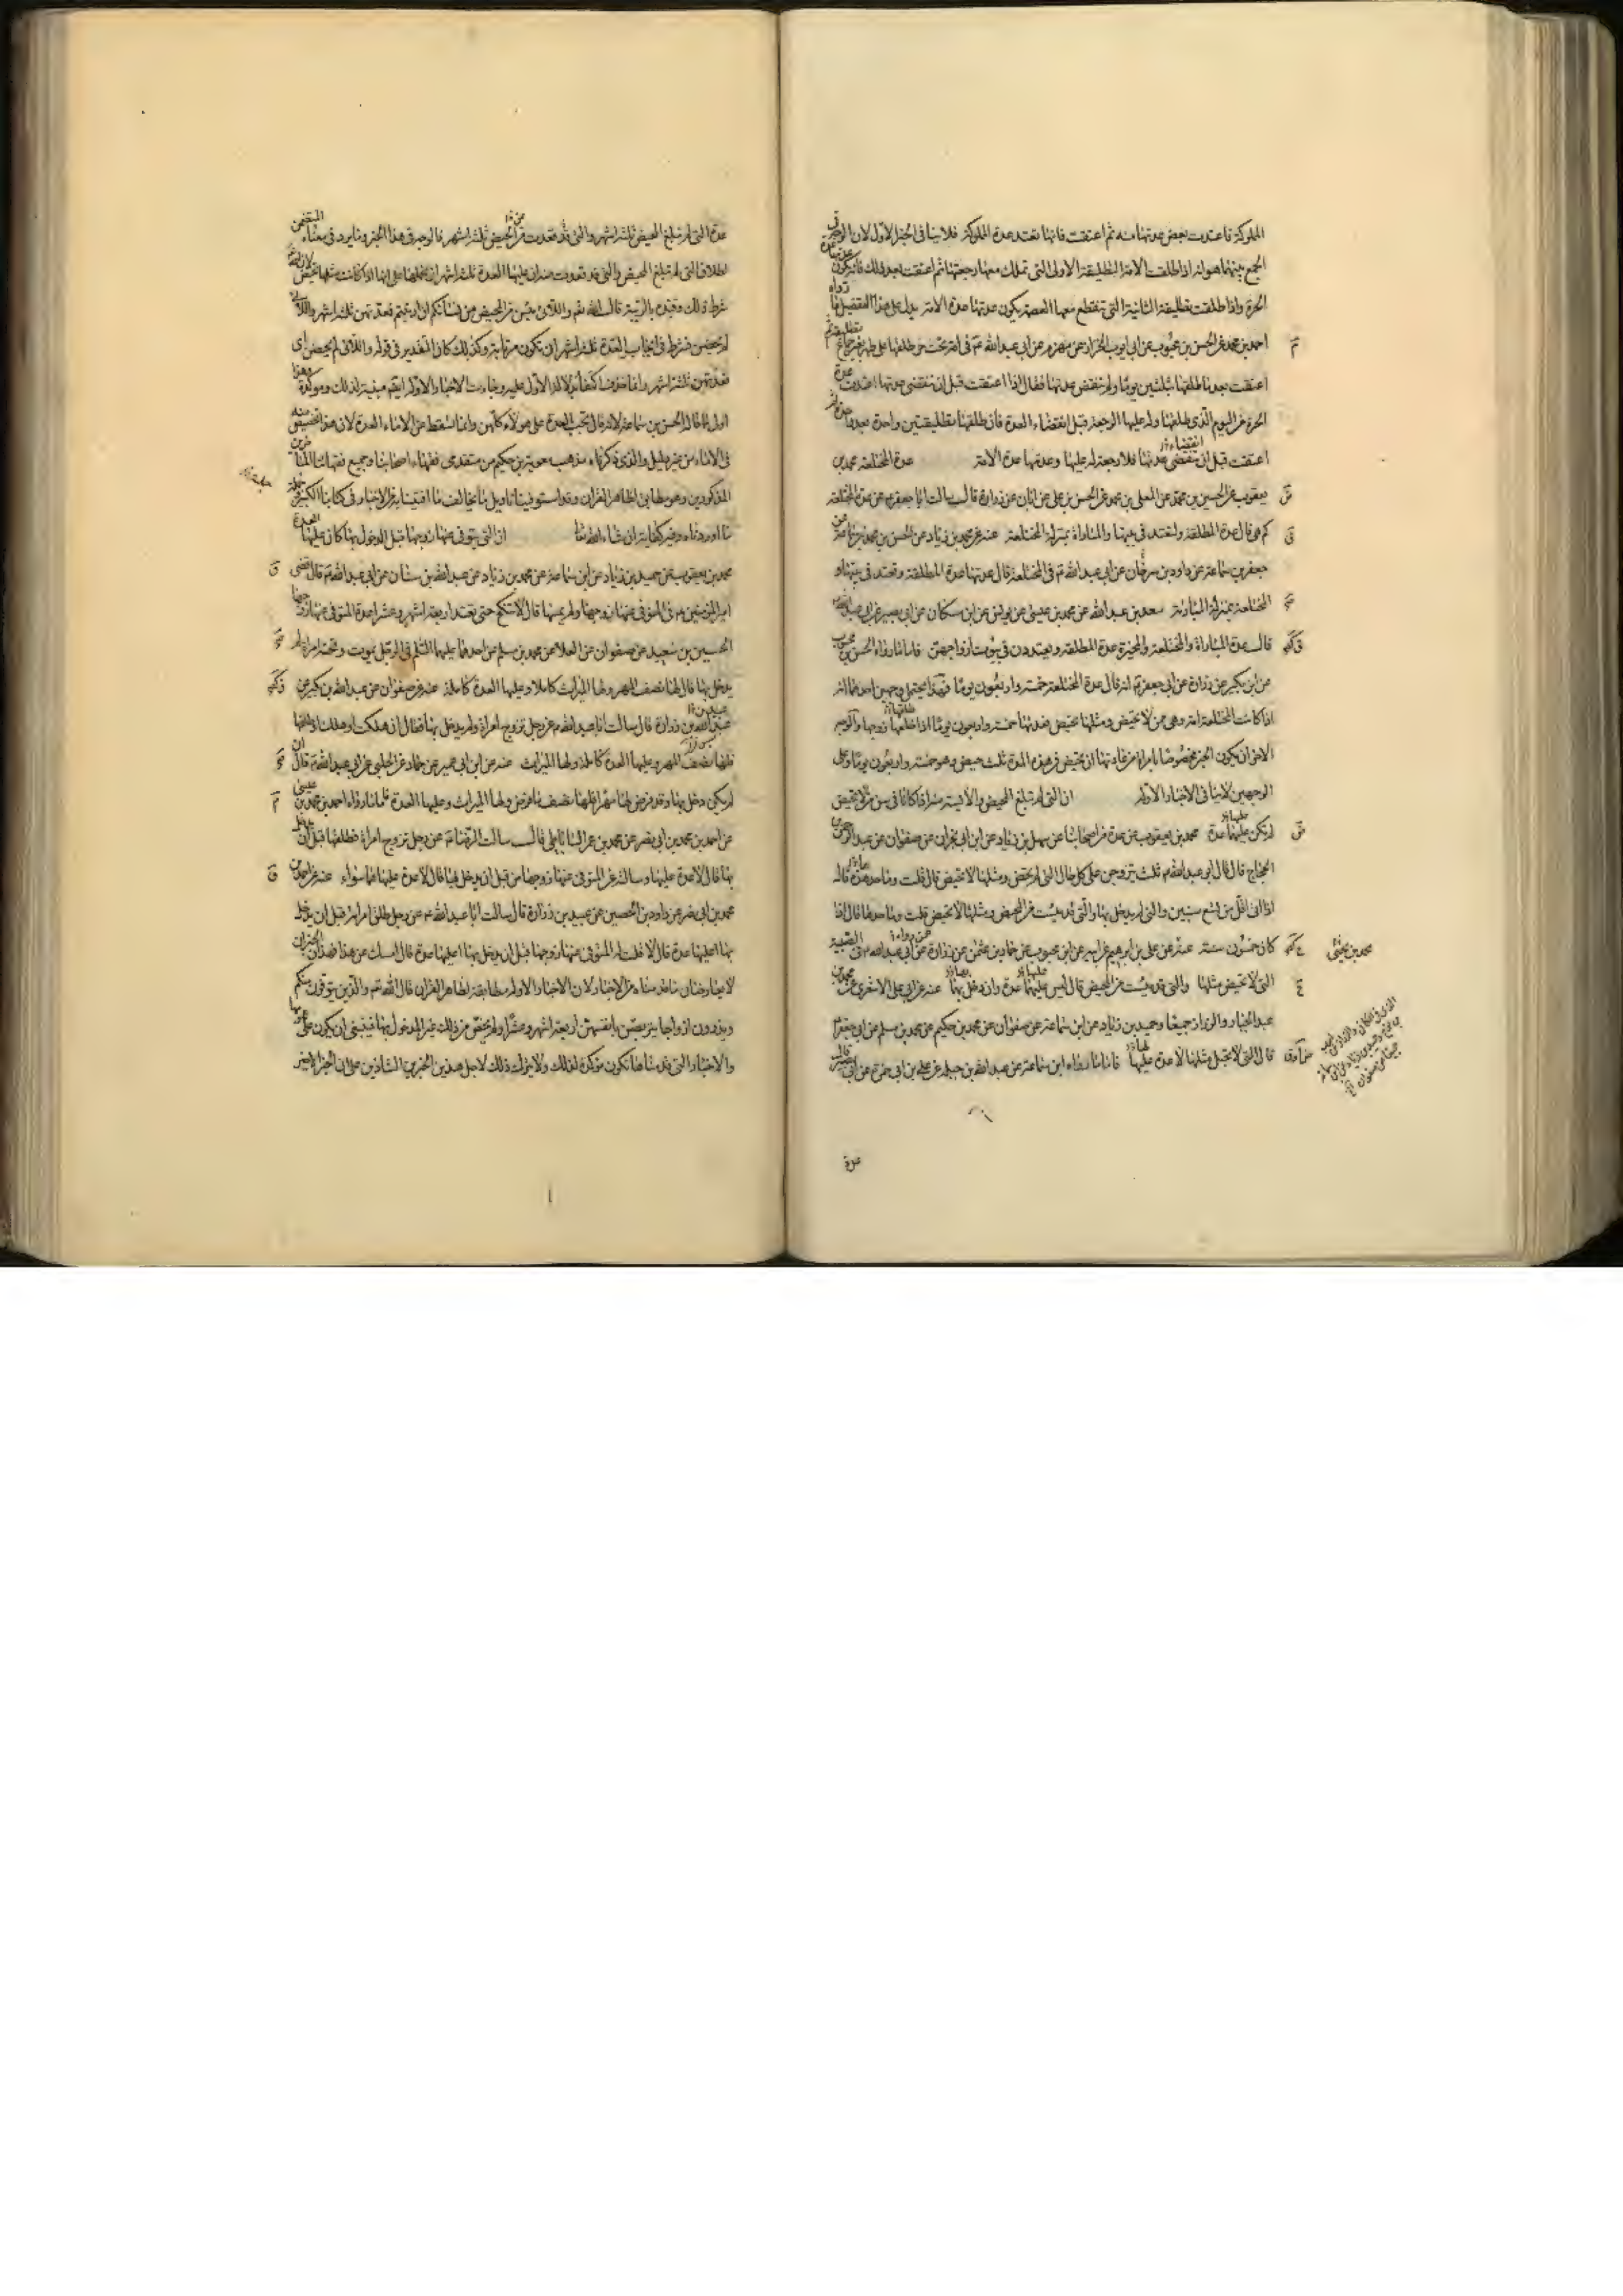 المملوكة فاعتدت بعض عدتها منه ثم اعتقت فانها تعتد عدة المملوكة فلا ينافى الخبر الاول لان الوجه فى
الجمع بينهما هو انه اذا طلقت الامة التطليقة الاولى التى تملك معها رجعتها ثم اعتقت بعد ذلك فانه يكون عدتها عدة
الحرة واذا طلقت تطليقة الثانية التى تنقطع معها العصمة يكون عدتها عدة الامة يدل على هذا التفصيل ما رواه
احمد بن محمد عن الحسن بن محبوب عن ابى ايوب الخزاز عن مهزم عن ابى عبد الله ع فى امة تحت حر طلقها على طهر بغير جماع تطليقة ثم
اعتقت بعد ما طلقها بثلثين يوما ولم تنقض عدتها فقال اذا اعتقت قبل ان تنقضى عدتها اعتدت عدة
الحرة من اليوم الذى طلقها وله عليها الرجعة قبل انقضاء العدة فان طلقها تطليقتين واحدة بعد واحدة ثم
اعتقت قبل انقضاء عدتها فلا رجعة له عليها وعدتها عدة الامة عدة المختلعة محمد بن
يعقوب عن الحسين بن محمد عن المعلى بن محمد عن الحسن بن على عن ابان عن زرارة قال سالت ابا جعفر ع عن عدة المختلعة
كم هى قال عدة المطلقة ولتعتد فى بيتها والمباراة بمنزلة المختلعة عنه عن حميد بن زياد عن الحسن بن محمد بن سماعة عن
جعفر بن سماعة عن داود بن سرحان عن ابى عبد الله ع فى المختلعة قال عدتها عدة المطلقة وتعتد فى بيتها و
المختلعة بمنزلة المباراة سعد بن عبد الله عن محمد بن عيسى عن يونس عن ابن مسكان عن ابى بصير عن ابى عبد الله ع
قال عدة المباراة والمختلعة والمخيرة عدة المطلقة ويعتددن فى بيوت ازواجهن فاما ما رواه الحسن بن محبوب
عن ابن بكير عن زرارة عن ابى جعفر ع انه قال عدة المختلعة خمسة واربعون يوما فهذا يحتمل وجهين احدهما انه
اذا كانت المختلعة امة وهى ممن لا تحيض ومثلها تحيض فعدتها خمسة واربعون يوما اذا طلقها زوجها والوجه
الاخر ان يكون الخبر مخصوصا بامراة من عادتها ان تحيض فى هذه المدة ثلث حيض وهو خمسة واربعون يوما وعلى
الوجهين لا ينافى الاخبار الاولة ان التى لم تبلغ المحيض والآيسة منه اذا كانا فى سن من لا تحيض
لم يكن عليها عدة محمد بن يعقوب عن عدة من اصحابنا عن سهل بن زياد عن ابن ابى نجران عن صفوان عن عبد الرحمن بن
الحجاج قال قال ابو عبد الله ع ثلث يتزوجن على كل حال التى لم تحض ومثلها لا تحيض قال قلت وما حدها قال
اذا اتى اقل من تسع سنين والتى لم يدخل بها والتى قد يئست من المحيض ومثلها لا تحيض قلت وما حدها قال اذا
كان خمسون سنة عنه عن على بن ابرهيم عن ابيه عن ابن محبوب عن حماد بن عثمن عن زرارة عن ابى عبد الله ع فى الصبية
محمد بن يحيى
التى لا تحيض مثلها والتى قد يئست من المحيض قال ليس عليها عدة وان دخل بها عنه عن ابى على الاشعرى عن محمد بن
عبد الجبار والرزاز جميعا وحميد بن زياد عن ابن سماعة عن صفوان عن محمد بن حكيم عن محمد بن مسلم عن ابى جعفر ع
قال التى لا تحبل مثلها لا عدة عليها فاما ما رواه ابن سماعة عن عبد الله بن جبلة عن على بن ابى حمزة عن ابى بصير قال
عدة
عدة التى لم تبلغ المحيض ثلثة اشهر والتى قد قعدت من المحيض ثلثة اشهر فالوجه فى هذا الخبر وما يرد فى معناه المتضمن
اطلاق التى لم تبلغ المحيض والتى قد قعدت منه ان عليها العدة ثلثة اشهر ان نحملها على انها اذا كانت مثلها تحيض لان الله تع
شرط ذلك وقيده بالريبة قال الله تعم واللائى يئسن من المحيض من نسائكم ان ارتبتم فعدتهن ثلثة اشهر واللائى
لم يحضن فشرط فى ايجاب العدة ثلثة اشهر ان يكون مرتابة وكذلك كان التقدير فى قوله واللائى لم يحضن اى
فعدتهن ثلثة اشهر وانما حذف اكتفاء بدلالة الاول عليه وجاءت الاخبار الاولة ايضم مبينة لذلك ومؤكدة وهذا
اولى مما قاله الحسن بن سماعة لانه قال تجب العدة على هؤلاء كلهن وانما تسقط عن الاماء العدة لان هذا تخصيص منه
فى الاماء من غير دليل والذى ذكرناه مذهب معوية بن حكيم من متقدمى فقهاء اصحابنا وجميع فقهائنا المتاخرين
المذكورين وهو مطابق لظاهر القران وقد استوفينا تاويل ما يخالف ما افتينا به من الاخبار فى كتابنا الكبير
ما اوردناه وفيه كفاية ان شاء الله تع ان التى يتوفى عنها زوجها قبل الدخول بها كان عليها العدة
محمد بن يعقوب عن حميد بن زياد عن ابن سماعة عن محمد بن زياد عن عبد الله بن سنان عن ابى عبد الله ع قال قضى
امير المؤمنين ع فى المتوفى عنها زوجها ولم يمسها قال لا تنكح حتى تعتد اربعة اشهر وعشرا عدة المتوفى عنها زوجها
الحسين بن سعيد عن صفوان عن العلا عن محمد بن مسلم عن احدهما عليهما السلم فى الرجل يموت وتحته امراة لم
يدخل بها قال لها نصف المهر ولها الميراث كاملا وعليها العدة كاملة عنه عن صفوان عن عبد الله بن بكير عن
عبيد بن زرارة قال سالت ابا عبد الله ع عن رجل تزوج امراة ولم يدخل بها فقال ان هلكت او هلك او طلقها
فلها نصف المهر وعليها العدة كاملة ولها الميراث عنه عن ابن ابى عمير عن حماد عن الحلبى عن ابى عبد الله ع قال ان
لم يكن دخل بها وقد فرض لها مهرا فلها نصف ما فرض ولها الميراث وعليها العدة فاما ما رواه احمد بن محمد بن عيسى
عن احمد بن محمد بن ابى نصر عن محمد بن عمر الساباطى قال سالت الرضا ع عن رجل تزوج امراة فطلقها قبل ان يدخل
بها قال لا عدة عليها وسالته عن المتوفى عنها زوجها من قبل ان يدخل بها قال لا عدة عليها هما سواء عنه عن احمد بن
محمد بن ابى نصر عن داود بن الحصين عن عبيد بن زرارة قال سالت ابا عبد الله ع عن رجل طلق امراته قبل ان يدخل
بها اعليها عدة قال لا قلت له المتوفى عنها زوجها قبل ان يدخل بها اعليها عدة قال امسك عن هذا فهذان الخبران
لا يعارضان ما قدمناه من الاخبار لان الاخبار الاولة مطابقة لظاهر القران قال الله تعم والذين يتوفون منكم
ويذرون ازواجا يتربصن بانفسهن اربعة اشهر وعشرا ولم يخص من ذلك غير المدخول بها فينبغى ان يكون على عمومها
والاخبار التى قدمناها تكون مؤكدة لذلك ولا يترك ذلك لاجل هذين الخبرين الشاذين على ان الخبر الاخير